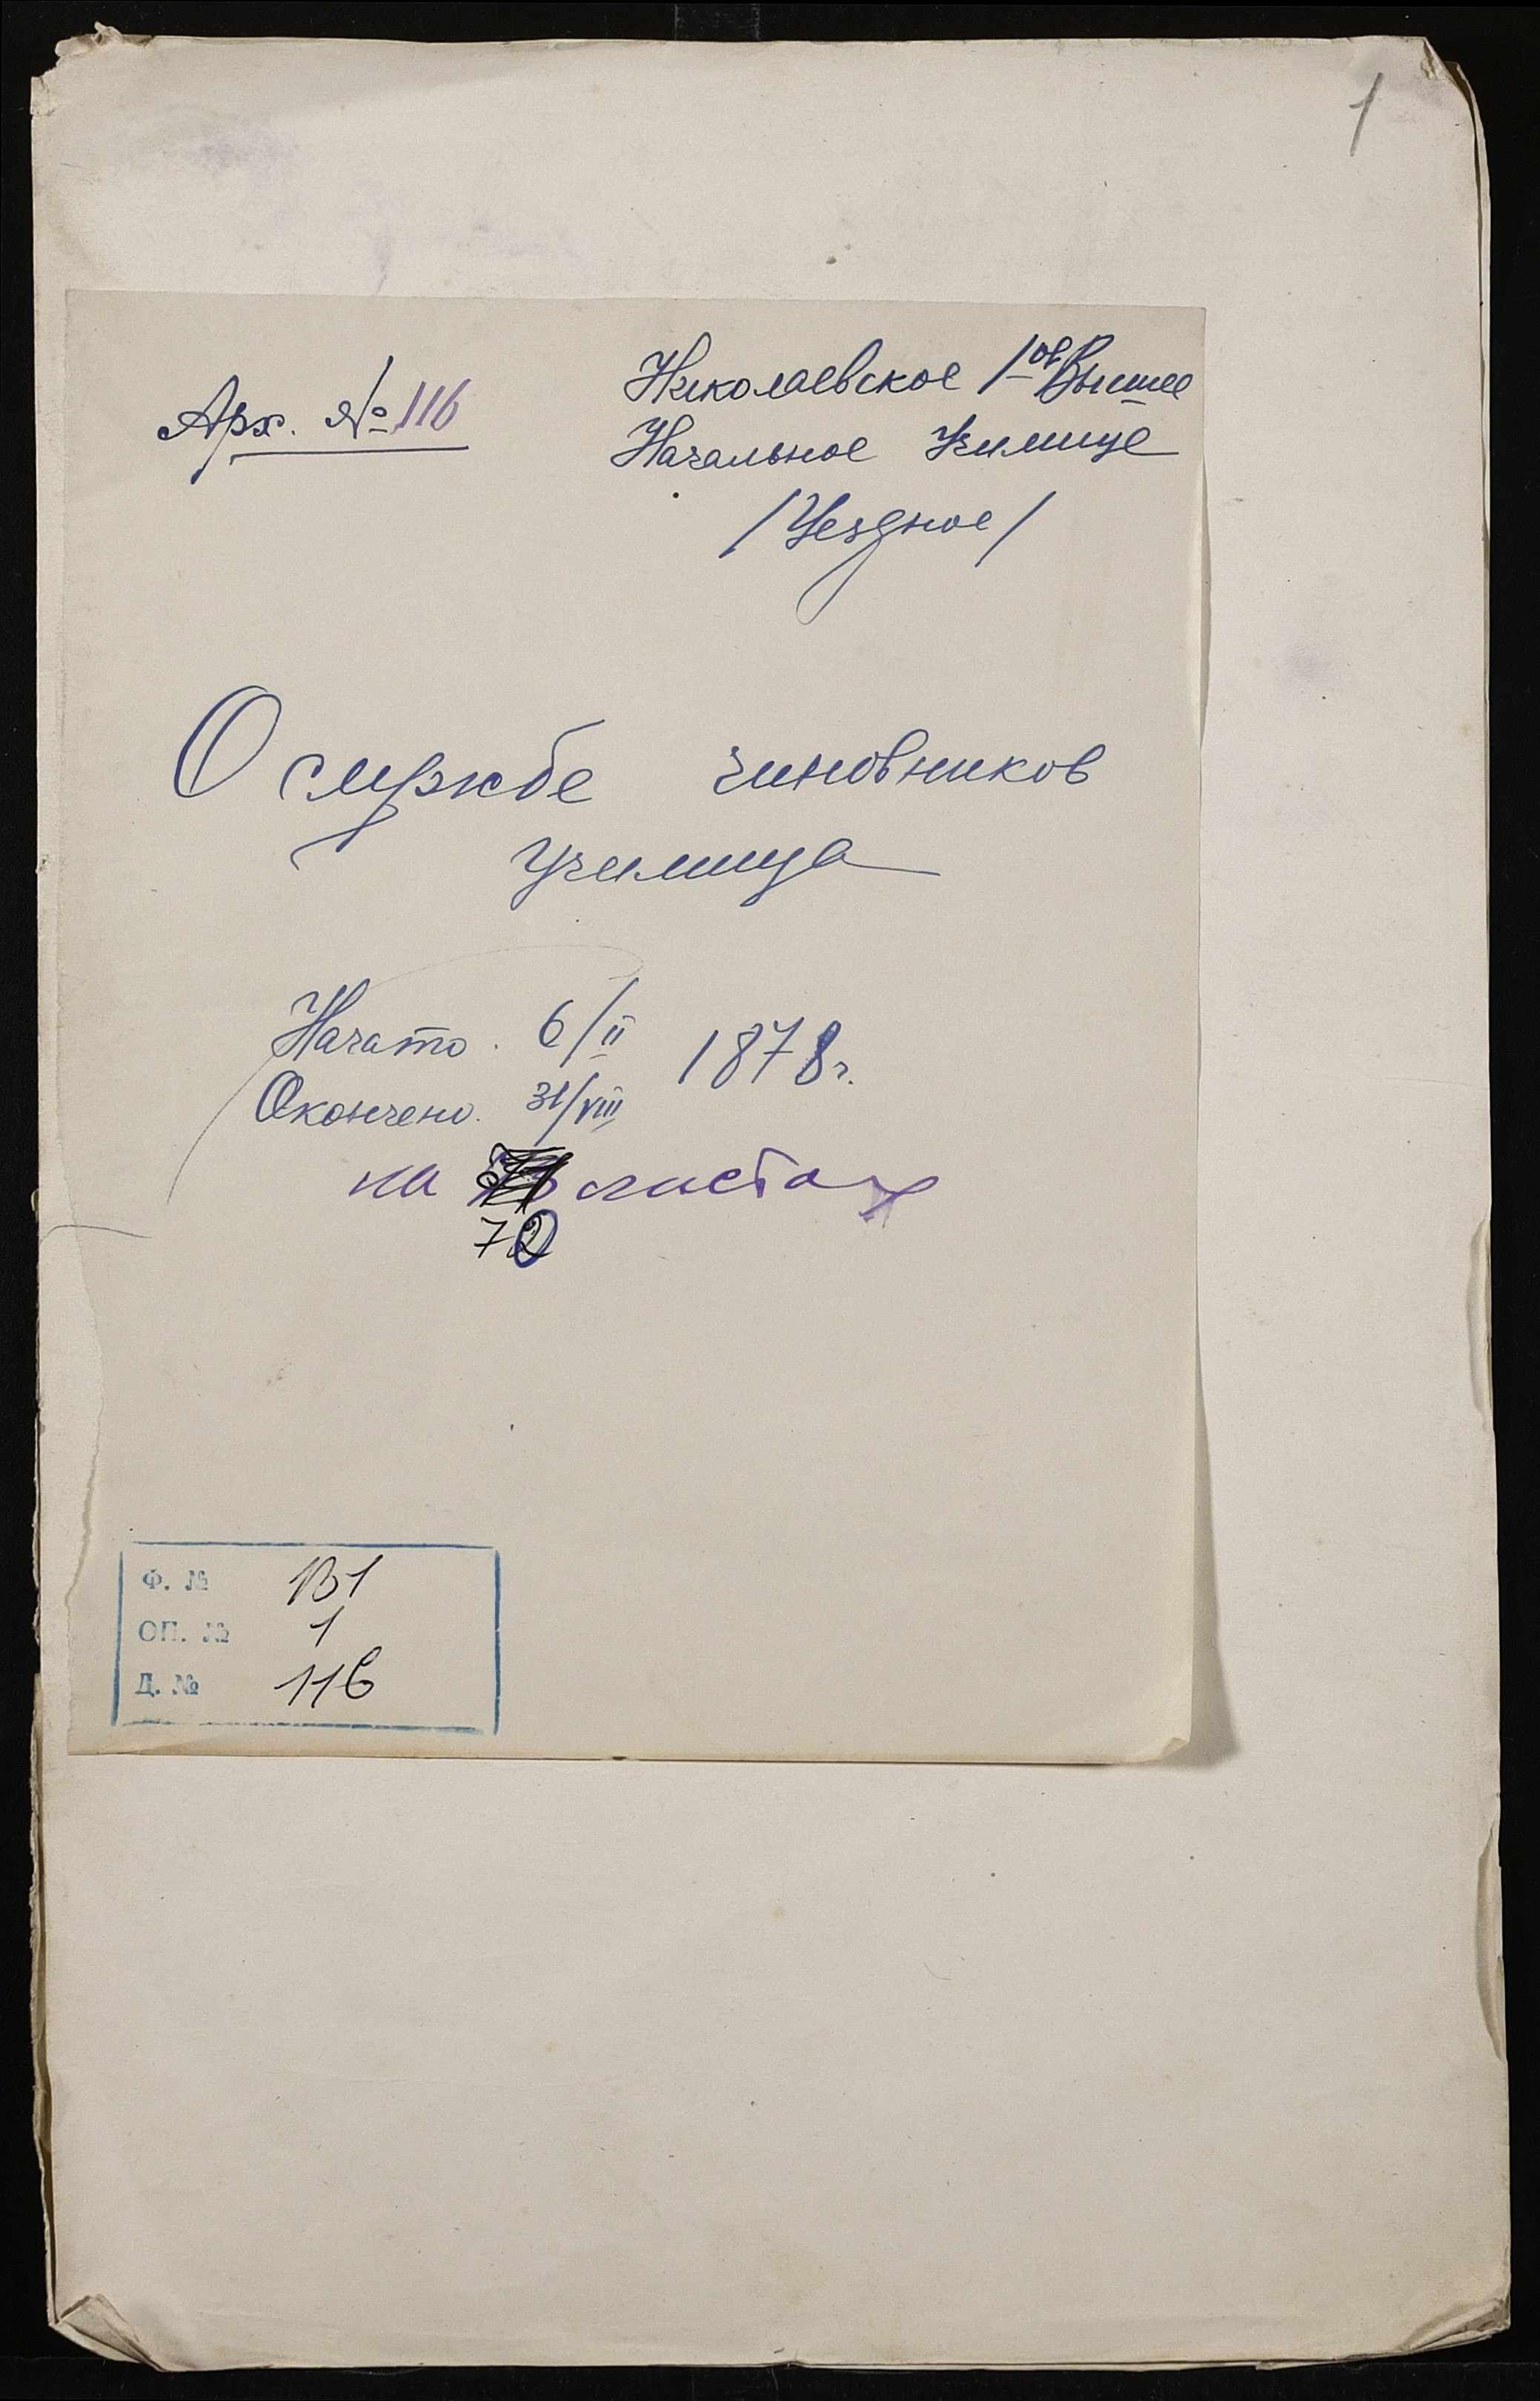 1
Арх. № 116
Николаевское 1ое Высшее
Начальное Училище
/Уездное/
О службе чиновников
училища
Начато. 6/II 1878 г.
Окончено. 31/VIII
на листах
70
Ф. № 131
ОП. № 1
Д. № 116